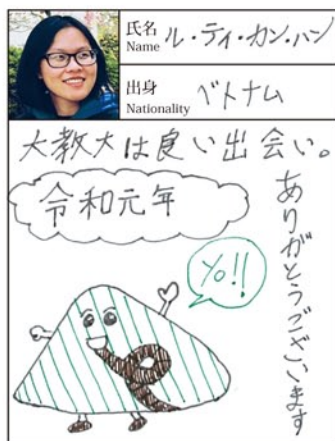 氏名
Name ル・ティ・カン・ハン
出身
Nationality ベトナム
大教大は良い出会い。
令和元年
Yo!!
ありがとうございます